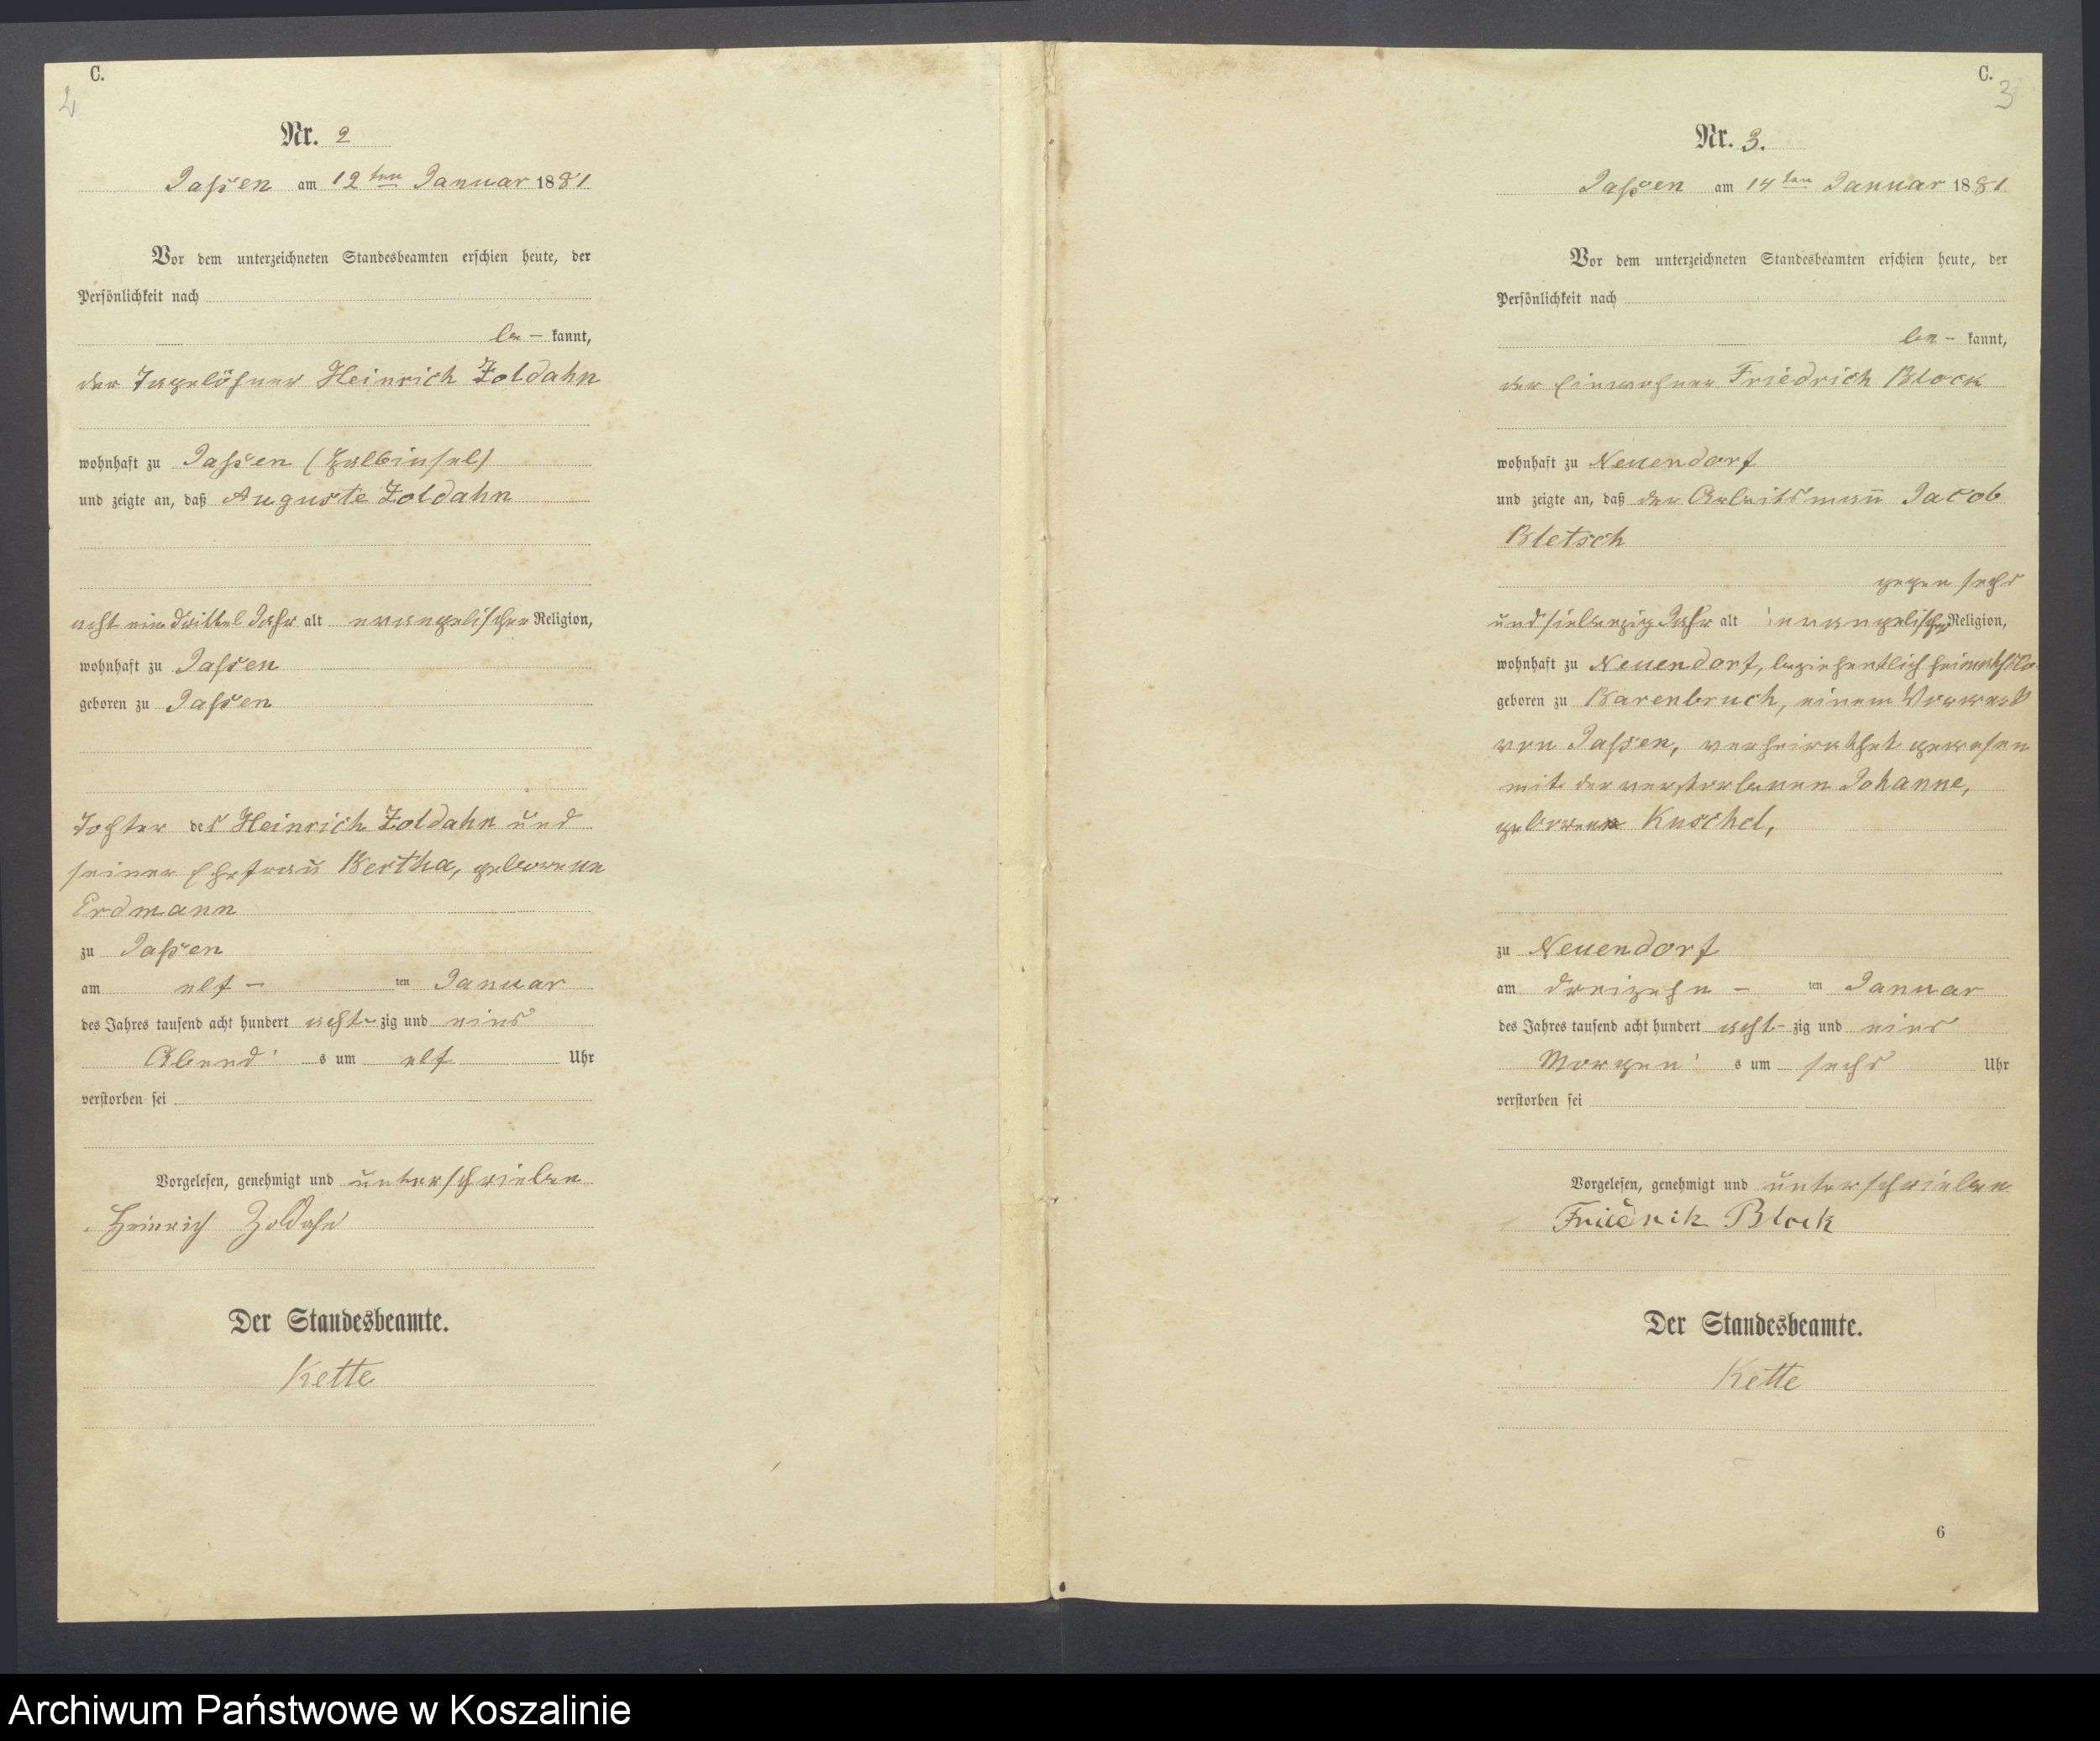 C.
2
Nr. 2
Jassen am 12ten Januar 1881
Vor dem unterzeichneten Standesbeamten erschien heute, der
Persönlichkeit nach
be- kannt,
der Tagelöhner Heinrich Zoldahn
wohnhaft zu Jassen (Halbinsel)
und zeigte an, daß Auguste Zoldahn
acht ein drittel Jahr alt evangelischer Religion,
wohnhaft zu Jassen
geboren zu Jassen
Tochter des Heinrich Zoldahn und
seiner Ehefrau Bertha, geborene
Erdmann
zu Jassen
am elf - ten Januar
des Jahres tausend acht hundert acht- zig und eins
Abend s um elf Uhr
verstorben sei
Vorgelesen, genehmigt und unterschrieben
Heinrich Zoldahn
Der Standesbeamte.
Kette
C.
3
Nr. 3.
Jassen am 14ten Januar 1881
Vor dem unterzeichneten Standesbeamten erschien heute, der
Persönlichkeit nach
be- kannt,
der Einwohner Friedrich Block
wohnhaft zu Neuendorf
und zeigte an, daß der Arbeitsmann Jacob
Bletsch
gegen sechs
und siebenzig Jahr alt evangelischer Religion,
wohnhaft zu Neuendorf, beziehentlich
geboren zu Barenbruch, einem Vorwerk
von Jassen, verheirathet gewesen
mit der verstorbenen Johanne,
geborene Kuschel,
zu Neuendorf
am dreizehn - ten Januar
des Jahres tausend acht hundert acht- zig und eins
Morgen s um sechs Uhr
verstorben sei
Vorgelesen, genehmigt und unterschrieben
Friedrik Block
Der Standesbeamte.
Kette
6
Archiwum Państwowe w Koszalinie